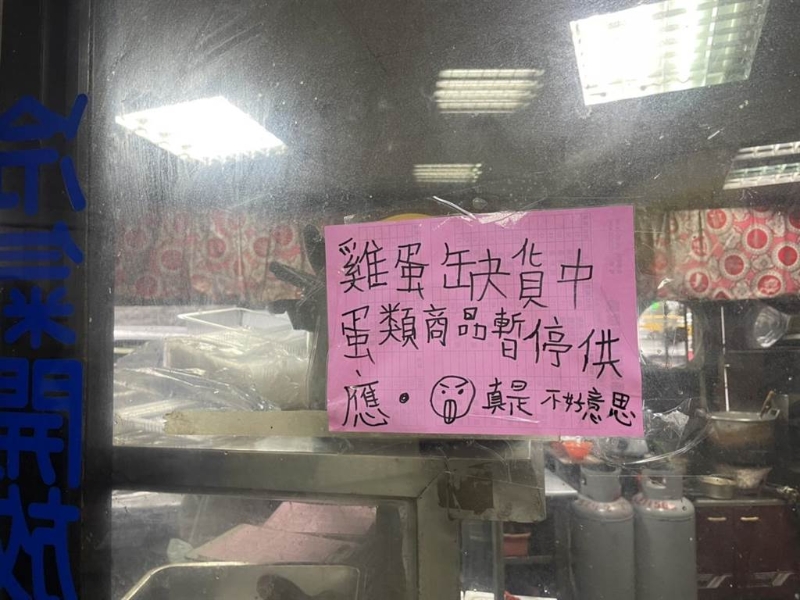 冷氣開放
雞蛋缺貨中
蛋類商品暫停供
應。真是 不好意思